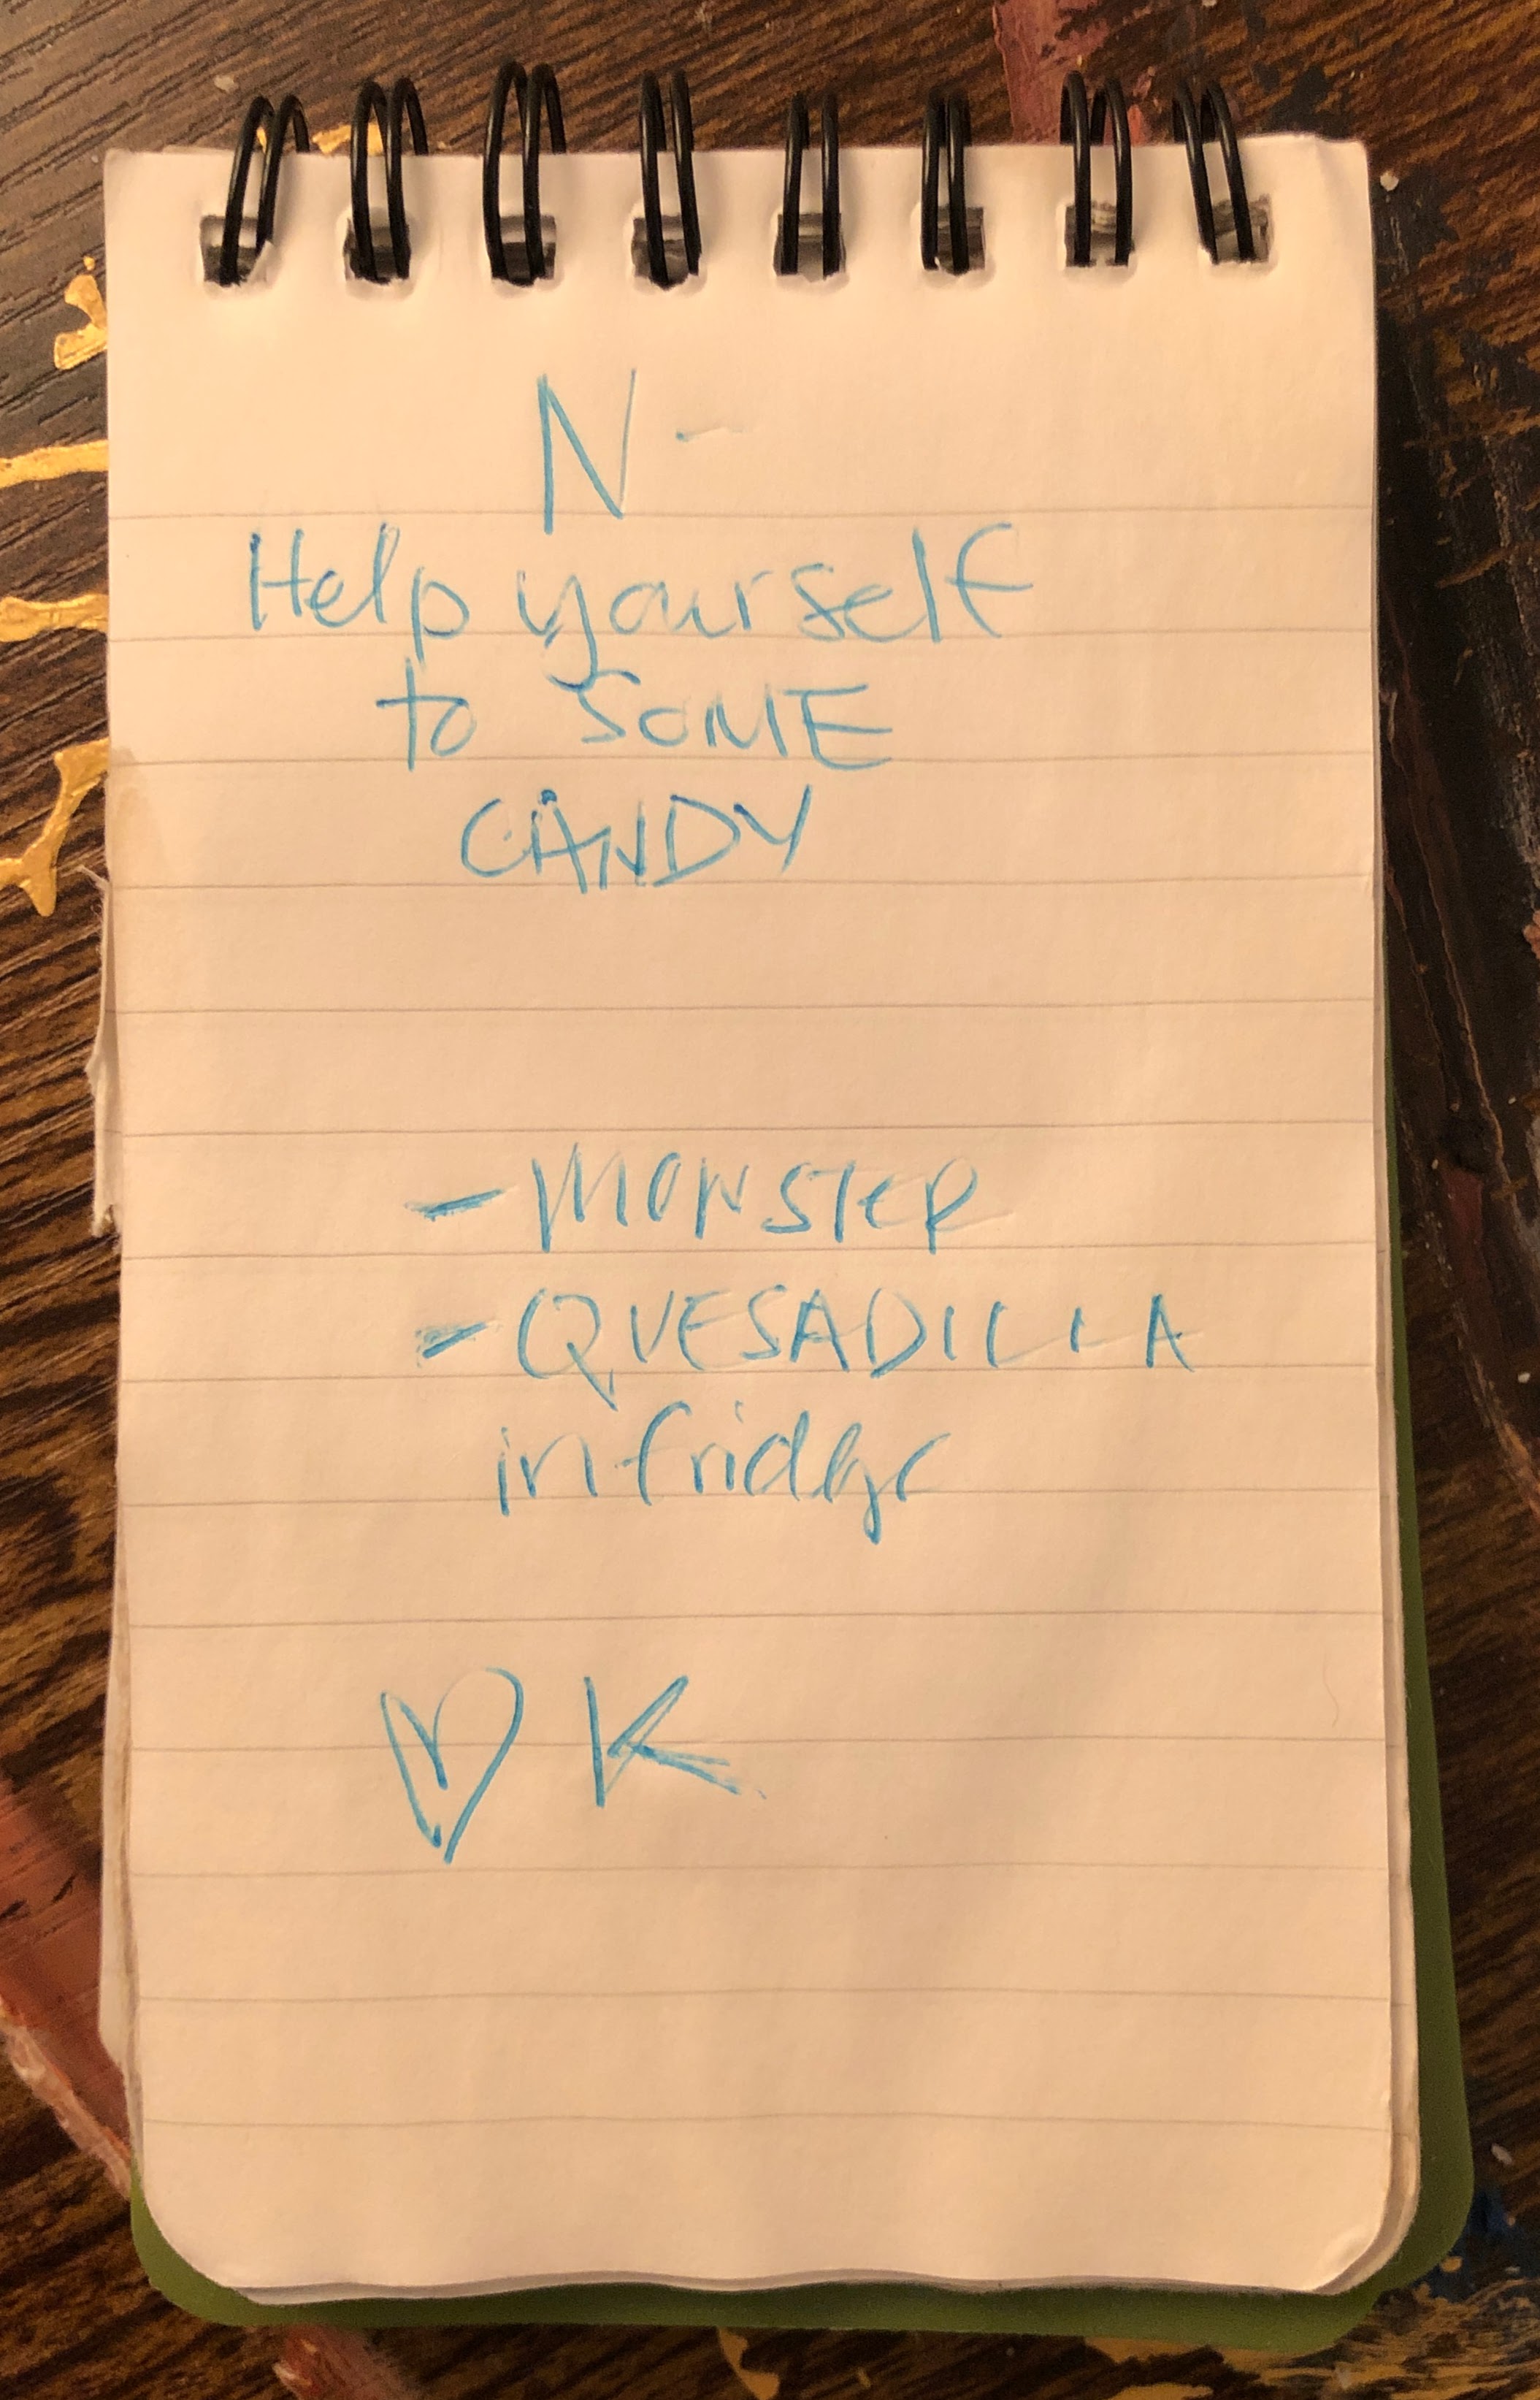 N -
Help yourself
to SOME
CANDY
- MONSTER
- QUESADILLA
in fridge
♡ K